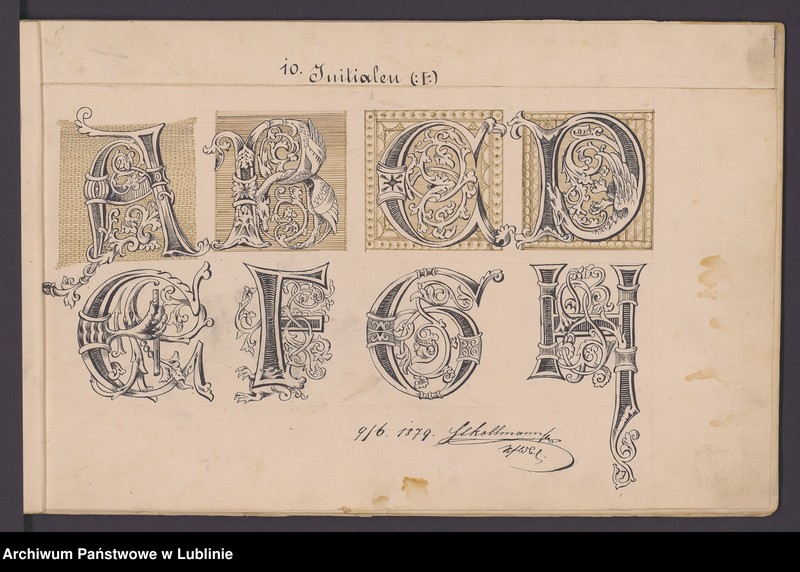 10. Initialen (:F:)
A B C D
E F G H
9/6. 1879.
Archiwum Państwowe w Lublinie